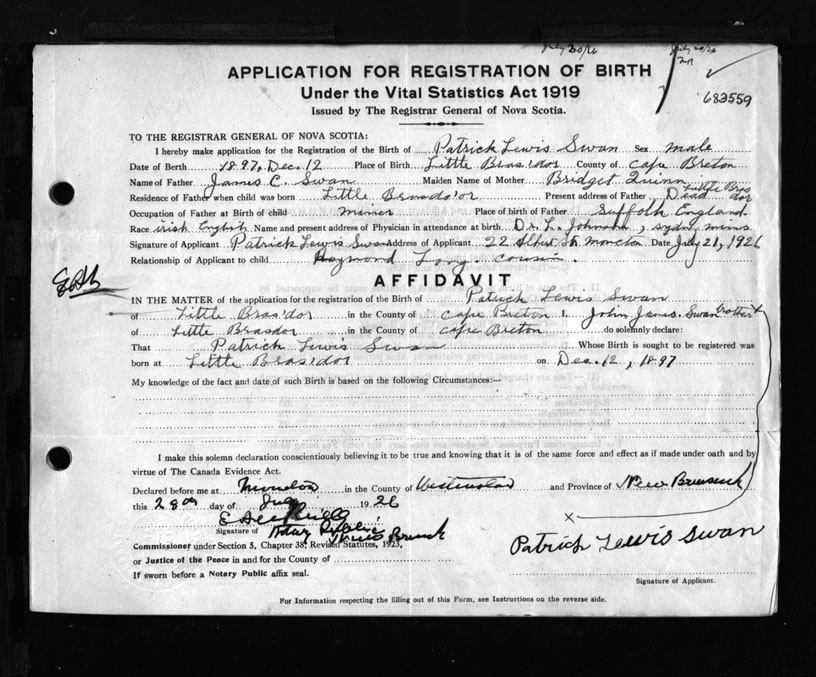 July 20/26
683559
APPLICATION FOR REGISTRATION OF BIRTH
Under the Vital Statistics Act 1919
Issued by The Registrar General of Nova Scotia.
TO THE REGISTRAR GENERAL OF NOVA SCOTIA:
I hereby make application for the Registration of the Birth of Patrick Lewis Swan Sex male
Date of Birth 1897, Dec. 12 Place of Birth Little Bras'dor County of Cape Breton
Name of Father James C. Swan Maiden Name of Mother Bridget Quinn
Residence of Father when child was born Little Brasdo'or Present address of Father Dead Little Bras dor
Occupation of Father at Birth of child miner Place of birth of Father Suffolk England
Race irish English Name and present address of Physician in attendance at birth Dr. L. Johnson, Sydny mins
Signature of Applicant Patrick Lewis Swan Address of Applicant 22 Albert St. Moncton Date July 21, 1926
Relationship of Applicant to child Raymond Long. cousin.
AFFIDAVIT
IN THE MATTER of the application for the registration of the Birth of Patrick Lewis Swan
of Little Bras'dor in the County of Cape Breton I, John Jams. Swan brother
of Little Brasdor in the County of Cape Breton do solemnly declare:
That Patrick Lewis Swan Whose Birth is sought to be registered was
born at Little Bras'dor on Dec. 12, 1897
My knowledge of the fact and date of such Birth is based on the following Circumstances:—
I make this solemn declaration conscientiously believing it to be true and knowing that it is of the same force and effect as if made under oath and by
virtue of The Canada Evidence Act.
Declared before me at Moncton in the County of Westmorland and Province of New Brunswick
this 28th day of July 1926
Signature of Notary Public
New Brunswick
Commissioner under Section 5, Chapter 38, Revised Statutes, 1923,
or Justice of the Peace in and for the County of
If sworn before a Notary Public affix seal.
x
Patrick Lewis Swan
Signature of Applicant.
For Information respecting the filling out of this Form, see Instructions on the reverse side.